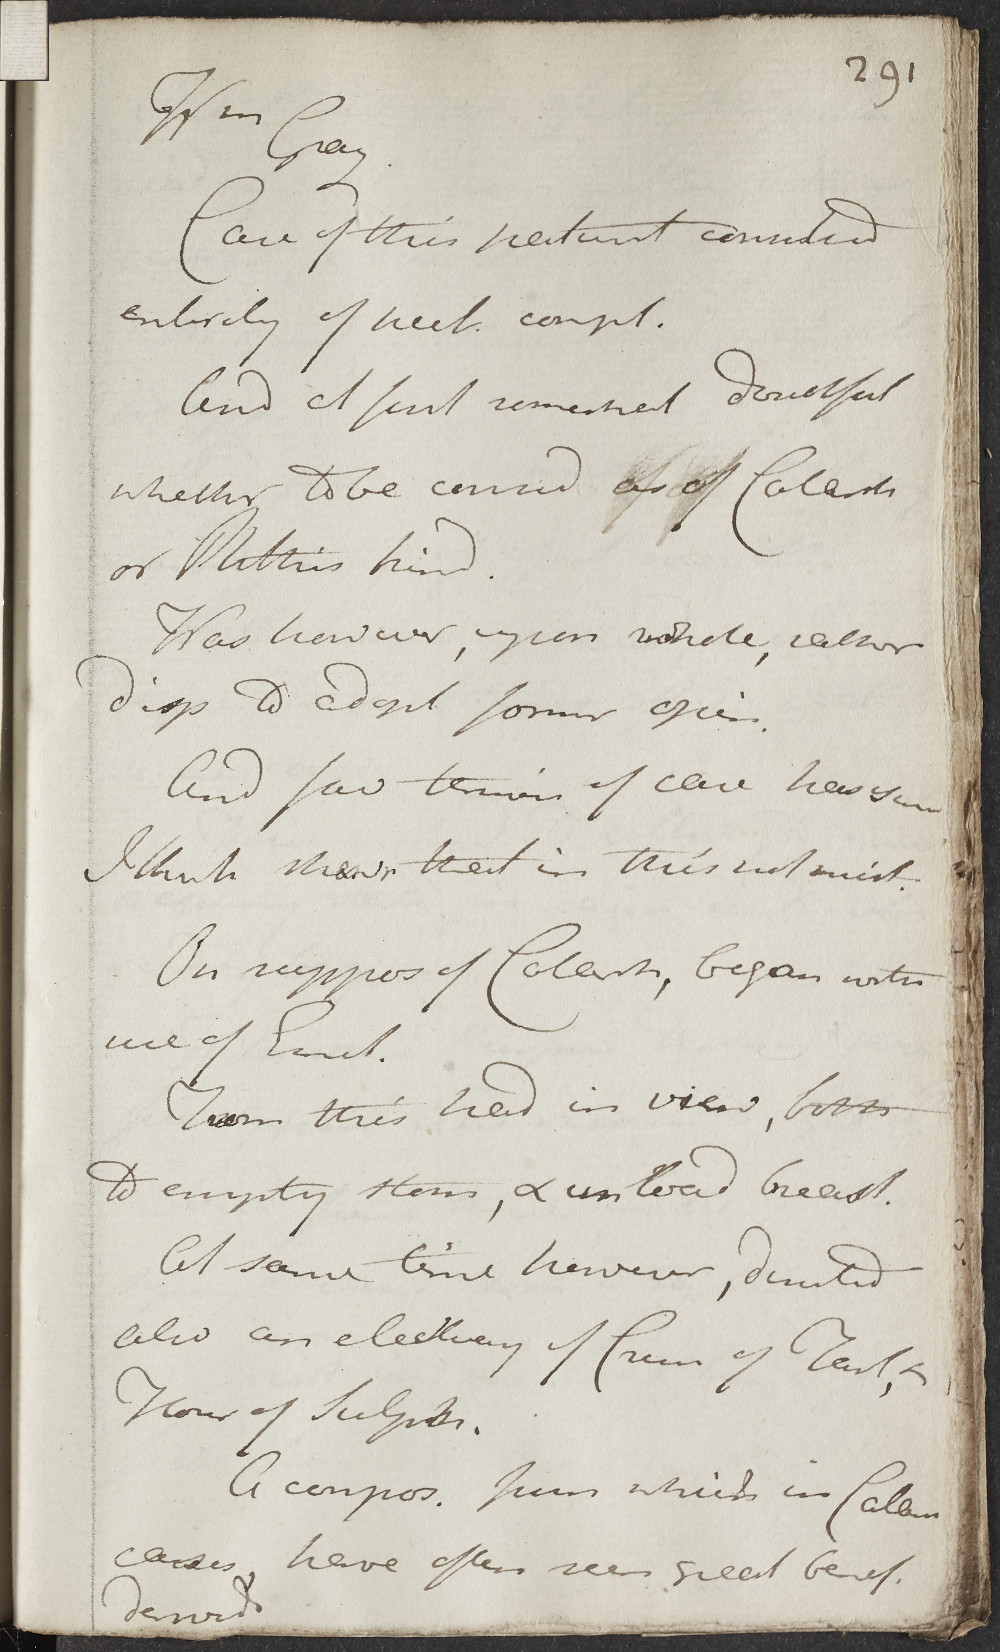 291
Wm Gray.
Case of this patient consisted
entirely of pect. compt.
And at first remained doubtful
whether to be consid as of Catarrh
or Phthis kind.
Was however, upon whole, rather
disp to adopt former opin.
And fav termin of case has
I think shewn that in this not mist.
On suppos of Catarrh, began with
use of Emet.
From this had in view, both
to empty stom, & unload breast.
At same time however, directed
also an electuary of Crem of Tart, &
Flour of Sulph.
A compos. from which in Catarr
cases, have often seen great benef.
derived